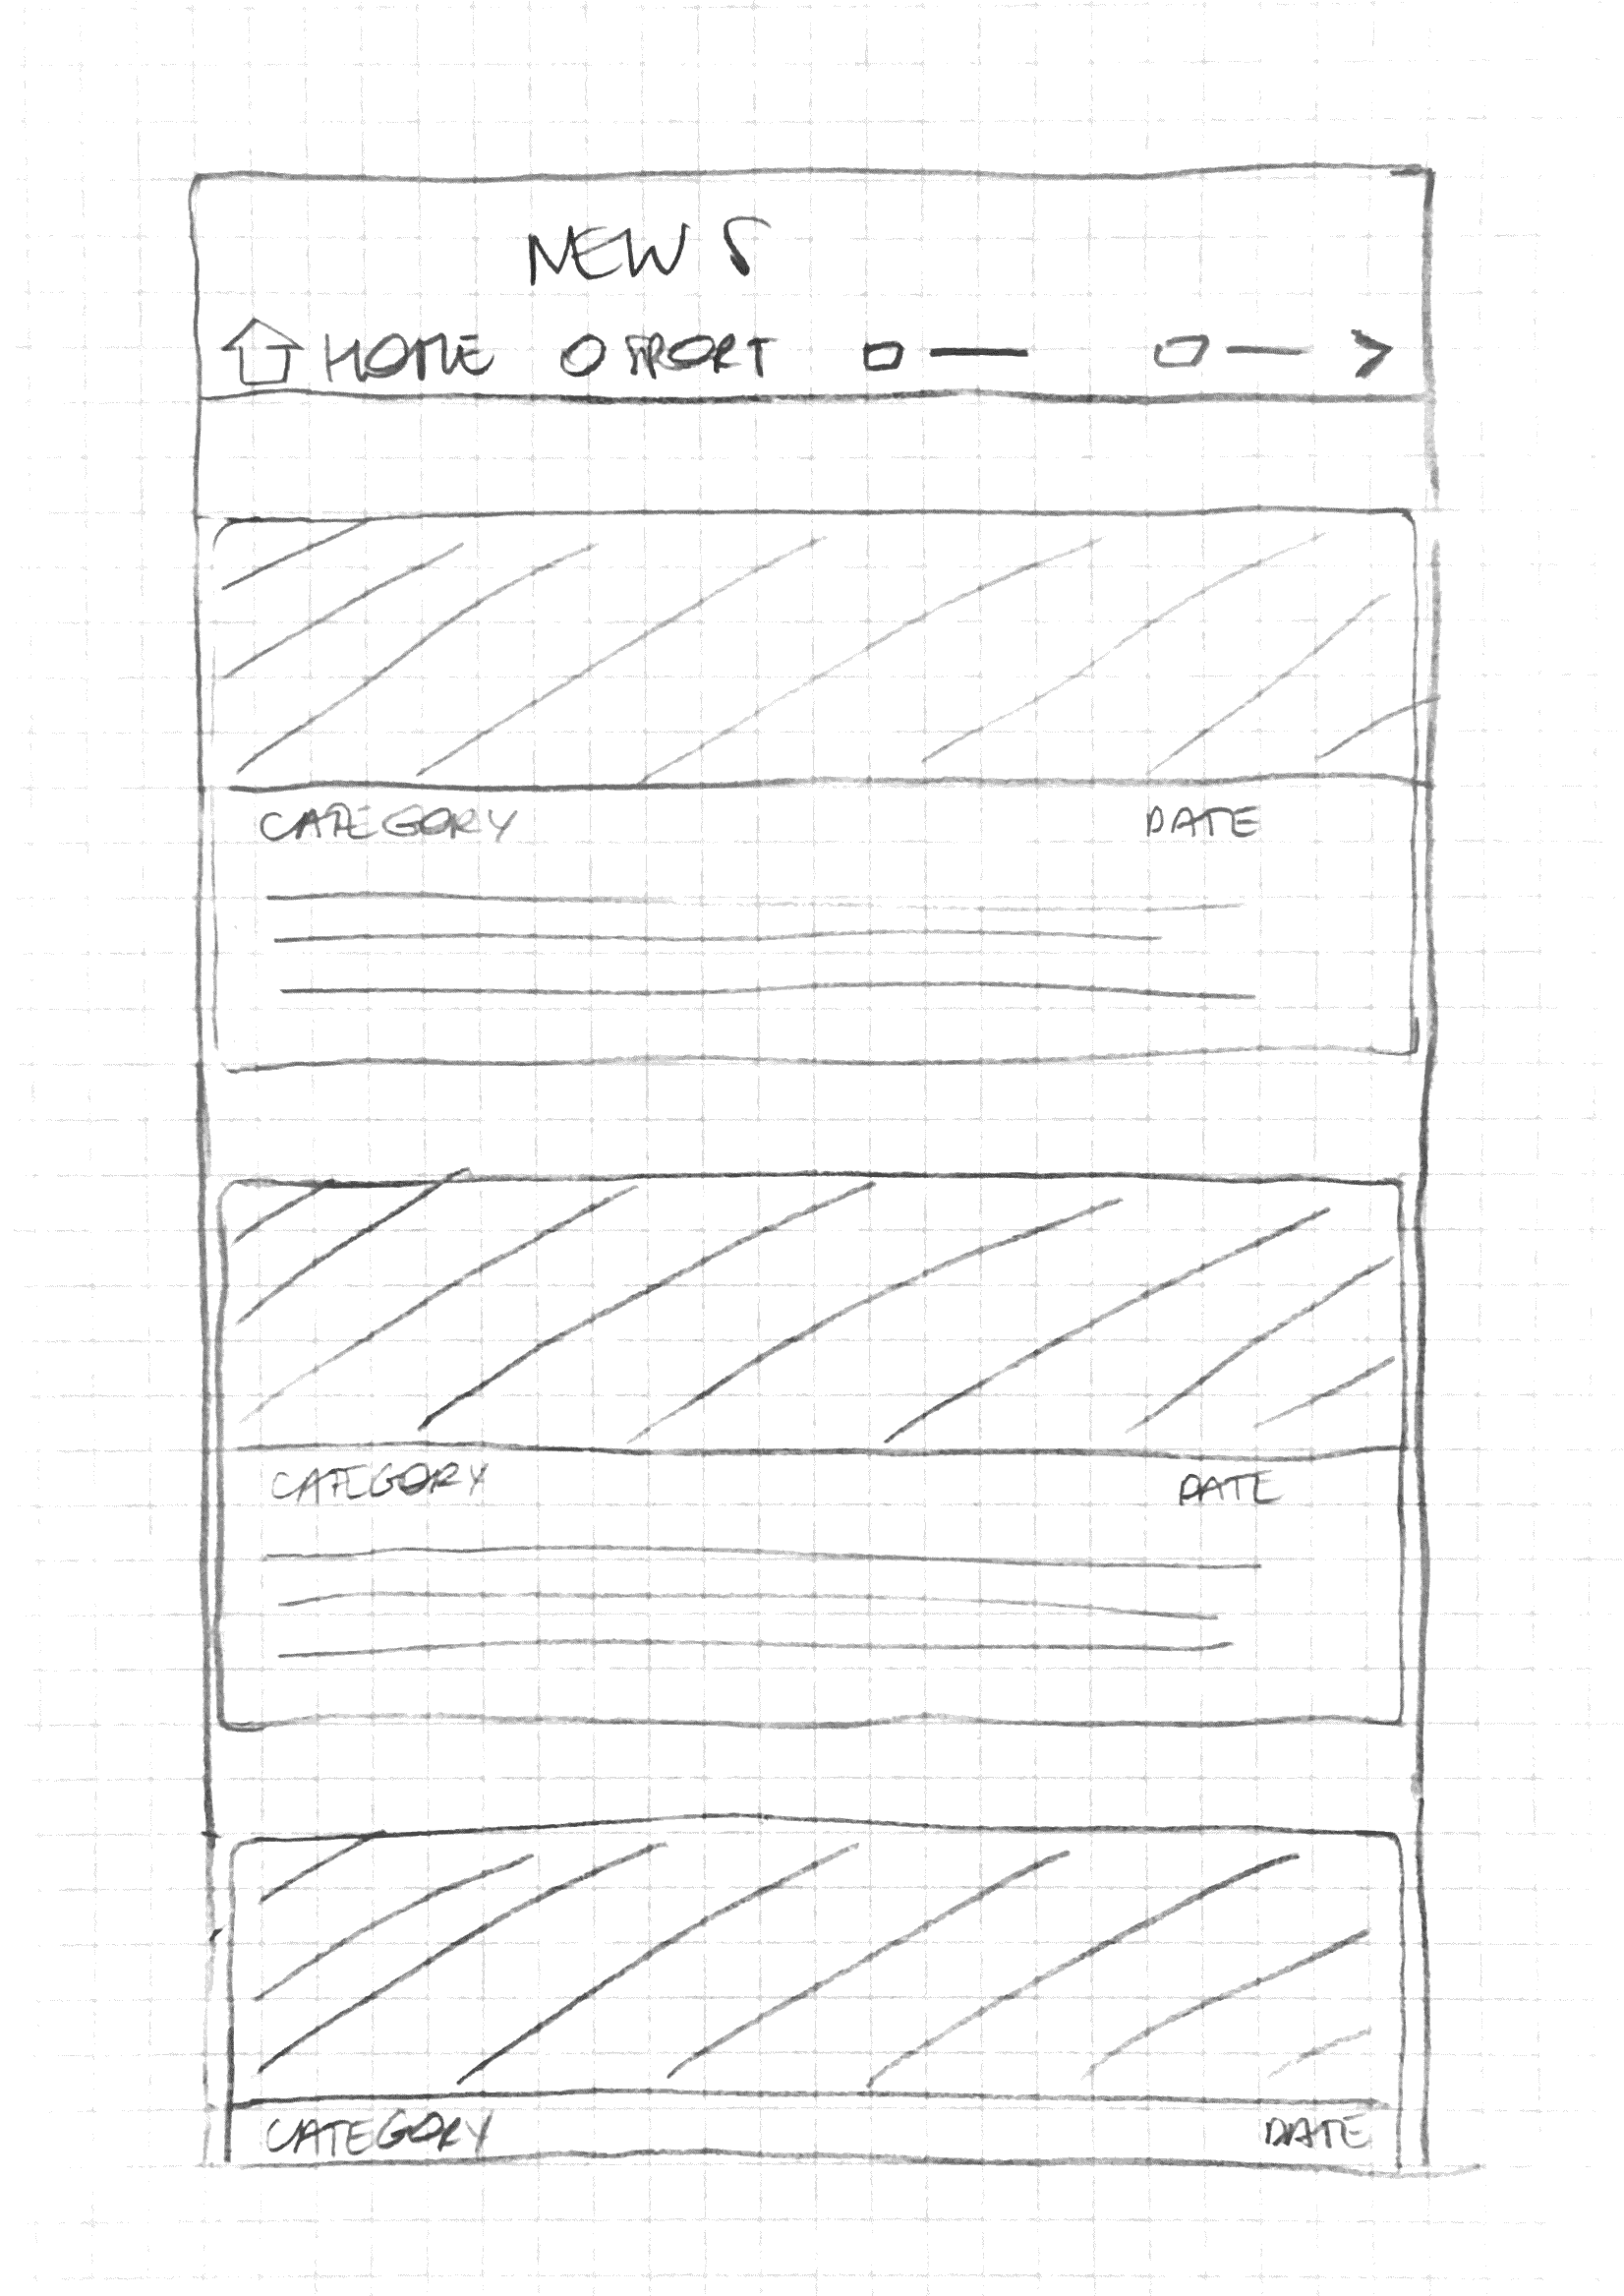 NEWS
HOME SPORT
CATEGORY DATE
CATEGORY DATE
CATEGORY DATE